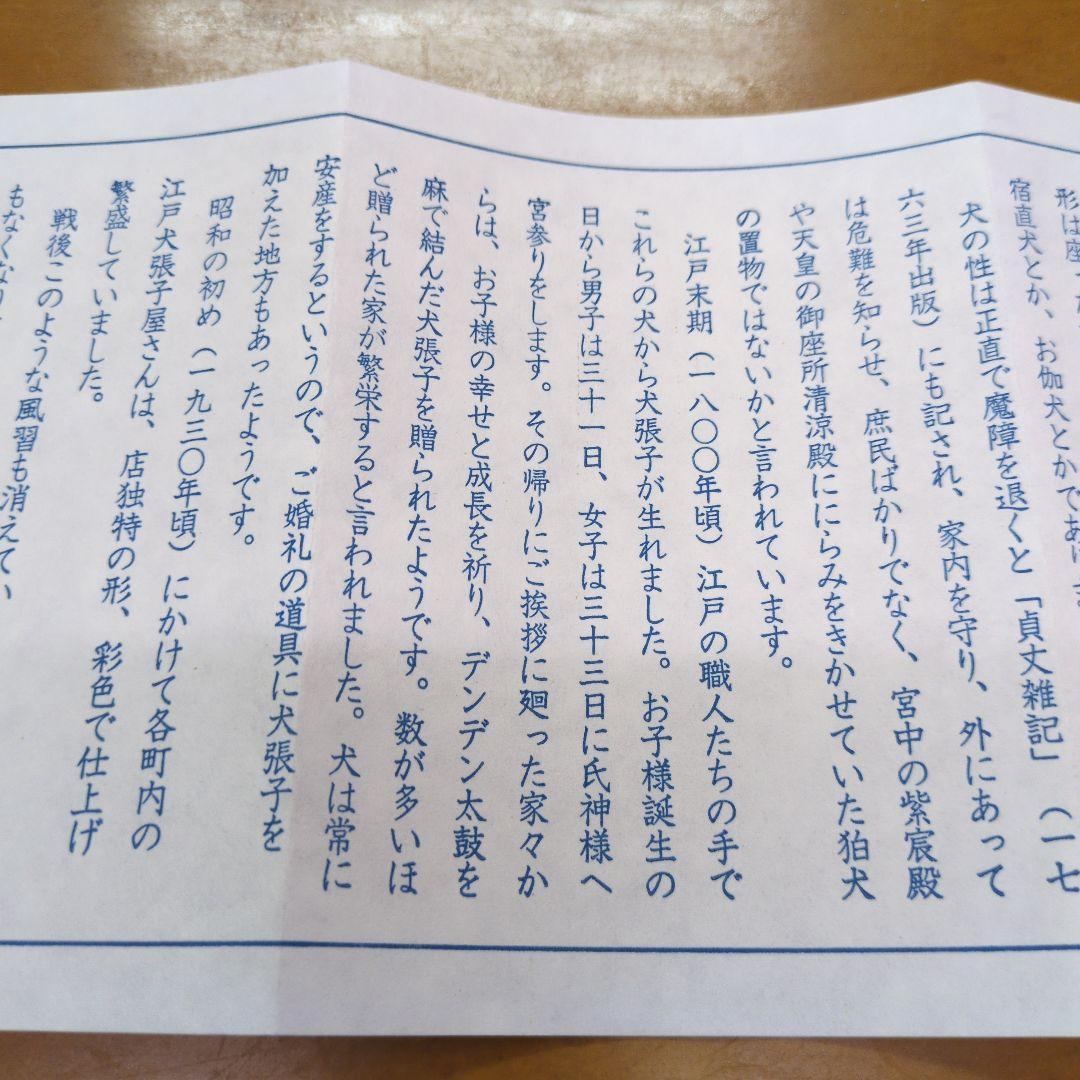 形は座
宿直犬とか、お伽犬とかであり
犬の性は正直で魔障を退くと「貞丈雑記」（一七
六三年出版）にも記され、家内を守り、外にあって
は危難を知らせ、庶民ばかりでなく、宮中の紫宸殿
や天皇の御座所清涼殿ににらみをきかせていた狛犬
の置物ではないかと言われています。
江戸末期（一八〇〇年頃）江戸の職人たちの手で
これらの犬から犬張子が生れました。お子様誕生の
日から男子は三十一日、女子は三十三日に氏神様へ
宮参りをします。その帰りにご挨拶に廻った家々か
らは、お子様の幸せと成長を祈り、デンデン太鼓を
麻で結んだ犬張子を贈られたようです。数が多いほ
ど贈られた家が繁栄すると言われました。犬は常に
安産をするというので、ご婚礼の道具に犬張子を
加えた地方もあったようです。
昭和の初め（一九三〇年頃）にかけて各町内の
江戸犬張子屋さんは、店独特の形、彩色で仕上げ
繁盛していました。
戦後このような風習も消えてい
もなくなり